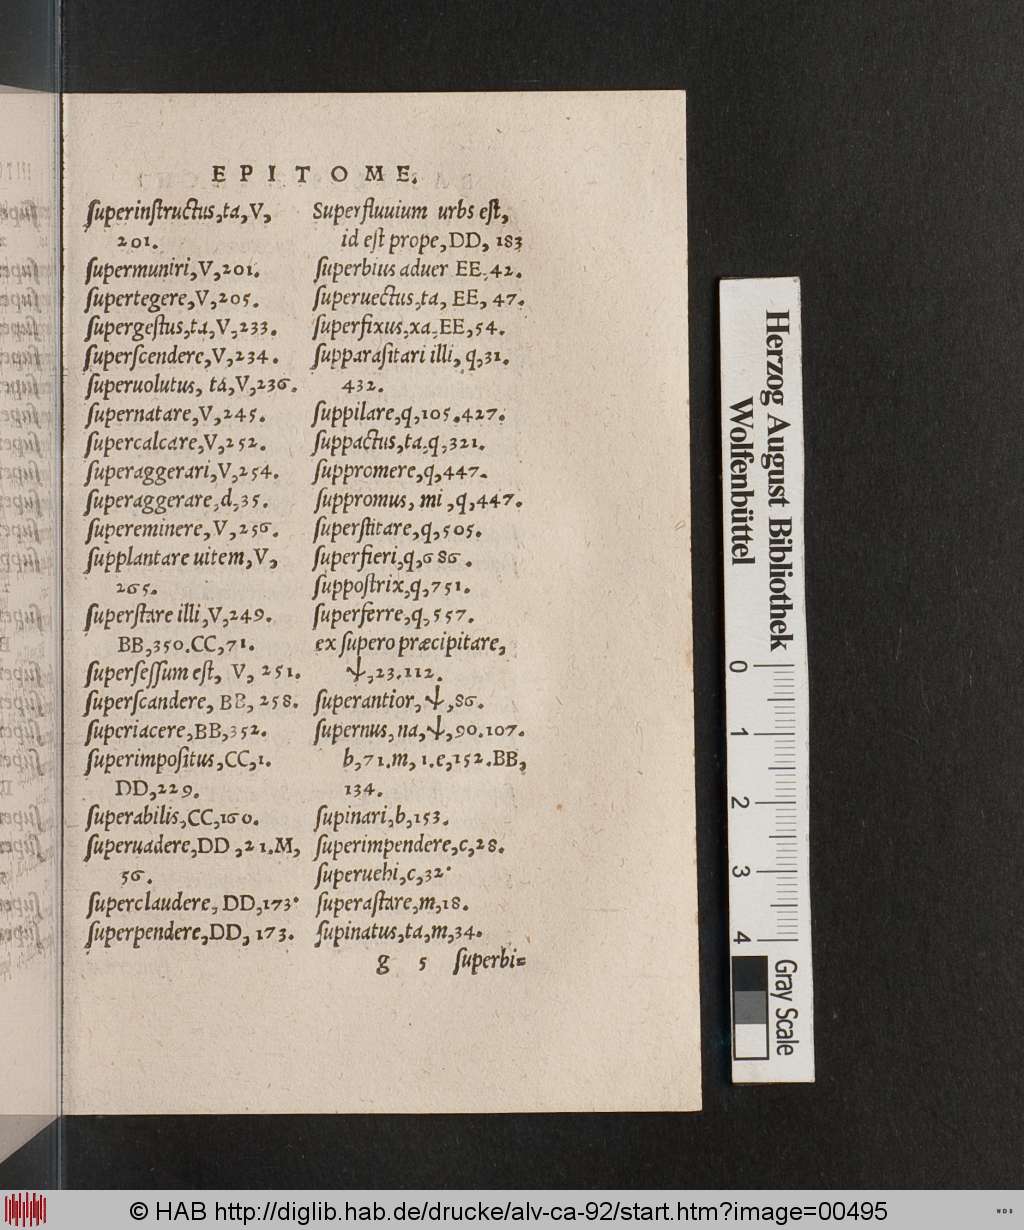 EPITOME.
ſuperinſtructus,ta,V,
201.
ſupermuniri,V,201.
ſupertegere,V,205.
ſupergeſtus,ta,V,233.
ſuperſcendere,V,234.
ſuperuolutus, ta,V,236.
ſupernatare,V,245.
ſupercalcare,V,252.
ſuperaggerari,V,254.
ſuperaggerare,d,35.
ſupereminere,V,256.
ſupplantare uitem,V,
265.
ſuperſtare illi,V,249.
BB,350.CC,71.
ſuperſeſſum eſt, V, 251.
ſuperſcandere, BB, 258.
ſuperiacere,BB,352.
ſuperimpoſitus,CC,1.
DD,229.
ſuperabilis,CC,160.
ſuperuadere,DD,21.M,
56.
ſuperclaudere, DD,173.
ſuperpendere,DD, 173.
Superfluuium urbs eſt,
id eſt prope,DD, 183
ſuperbius aduer EE,42.
ſuperuectus,ta, EE, 47.
ſuperfixus,xa,EE,54.
ſupparaſitari illi, q,31.
432.
ſuppilare,q,105.427.
ſuppactus,ta,q,321.
ſuppromere,q,447.
ſuppromus, mi,q,447.
ſuperſtitare,q,505.
ſuperfieri,q,686.
ſuppoſtrix,q,751.
ſuperferre,q,557.
ex ſupero præcipitare,
ψ,23.112.
ſuperantior,ψ,86.
ſupernus,na,ψ,90.107.
b,71.m,1.e,152.BB,
134.
ſupinari,b,153.
ſuperimpendere,c,28.
ſuperuehi,c,32.
ſuperaſtare,m,18.
ſupinatus,ta,m,34.
g 5 ſuperbi=
Herzog August Bibliothek
Wolfenbüttel
0 1 2 3 4
Gray Scale
© HAB http://diglib.hab.de/drucke/alv-ca-92/start.htm?image=00495